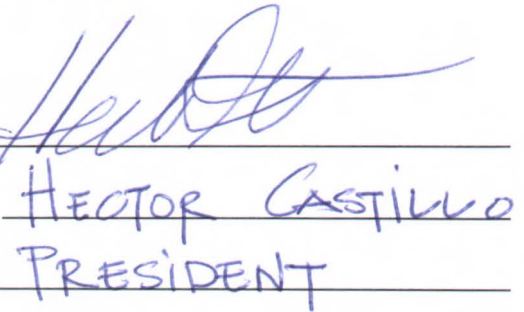 HECTOR CASTILLO
PRESIDENT